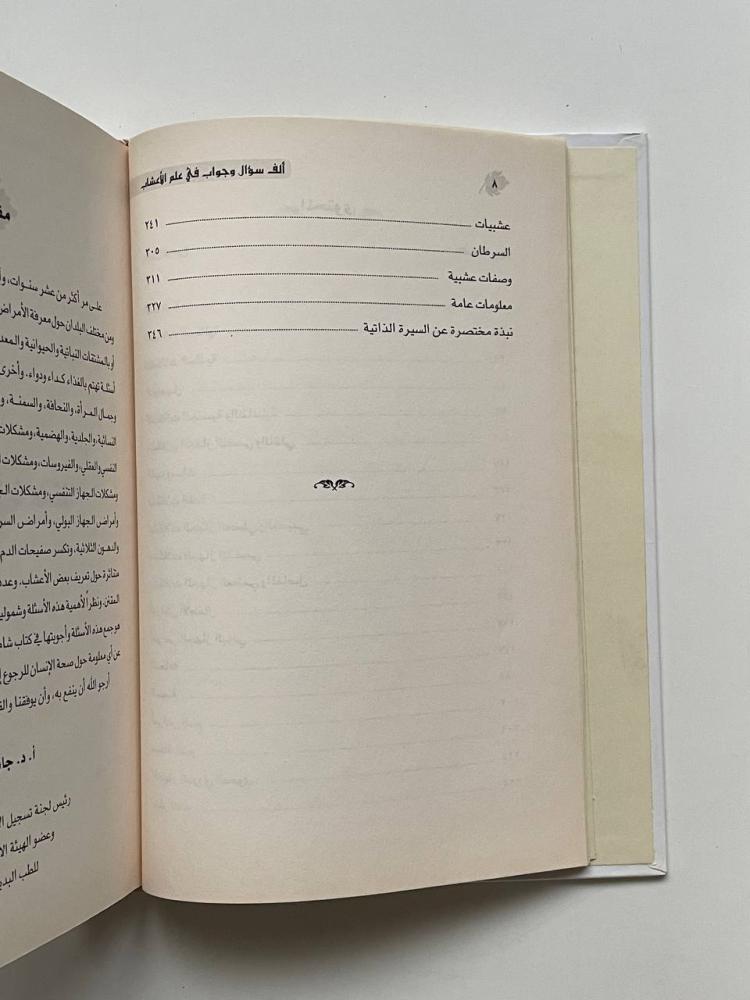 ٨
ألف سؤال وجواب في علم الأعشاب
عشبيات ٢٤١
السرطان ٣٠٥
وصفات عشبية ٣١١
معلومات عامة ٣٢٧
نبذة مختصرة عن السيرة الذاتية ٣٤٦
على مر أكثر من عشر سنوات،
ومن مختلف البلدان حول معرفة الأمراض
أو بالمشتقات النباتية والحيوانية
أسئلة تهتم بالغذاء كداء ودواء، وأخرى
وجمال المرأة، والنحافة، والسمنة،
النسائية، والجلدية، والهضمية، ومشكلات
النفسي والعقلي، والفيروسات، ومشكلات
ومشكلات الجهاز التنفسي، ومشكلات
وأمراض الجهاز البولي، وأمراض
والدهون الثلاثية، وتكسر صفيحات الدم
متناثرة حول تعريف بعض الأعشاب،
المقنن، ونظراً لأهمية هذه الأسئلة
هو جمع هذه الأسئلة وأجوبتها في كتاب
عن أي معلومة حول صحة الإنسان للرجوع
أرجو الله أن ينفع به، وأن يوفقنا
أ. د.
رئيس لجنة تسجيل
وعضو الهيئة
للطب